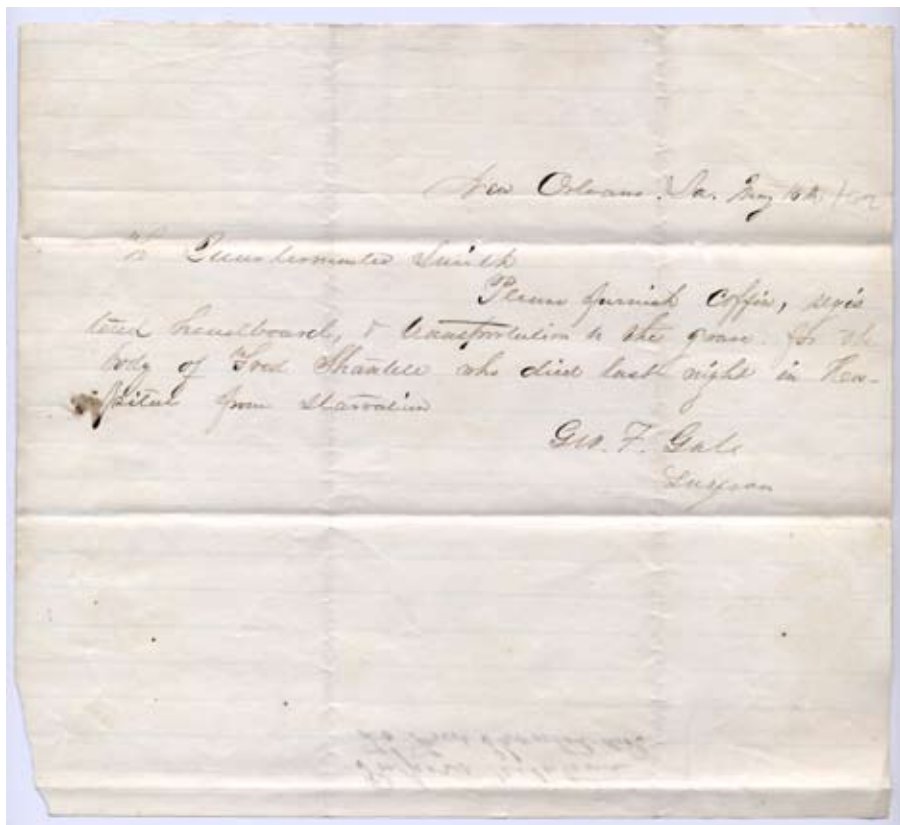 New Orleans, La. May 16th
To Quartermaster Smith
Please furnish coffin, regis
tered headboard, & transportation to the grave for the
body of Fred who died last night in Hos-
pital from starvation
Geo. F. Gale
Surgeon